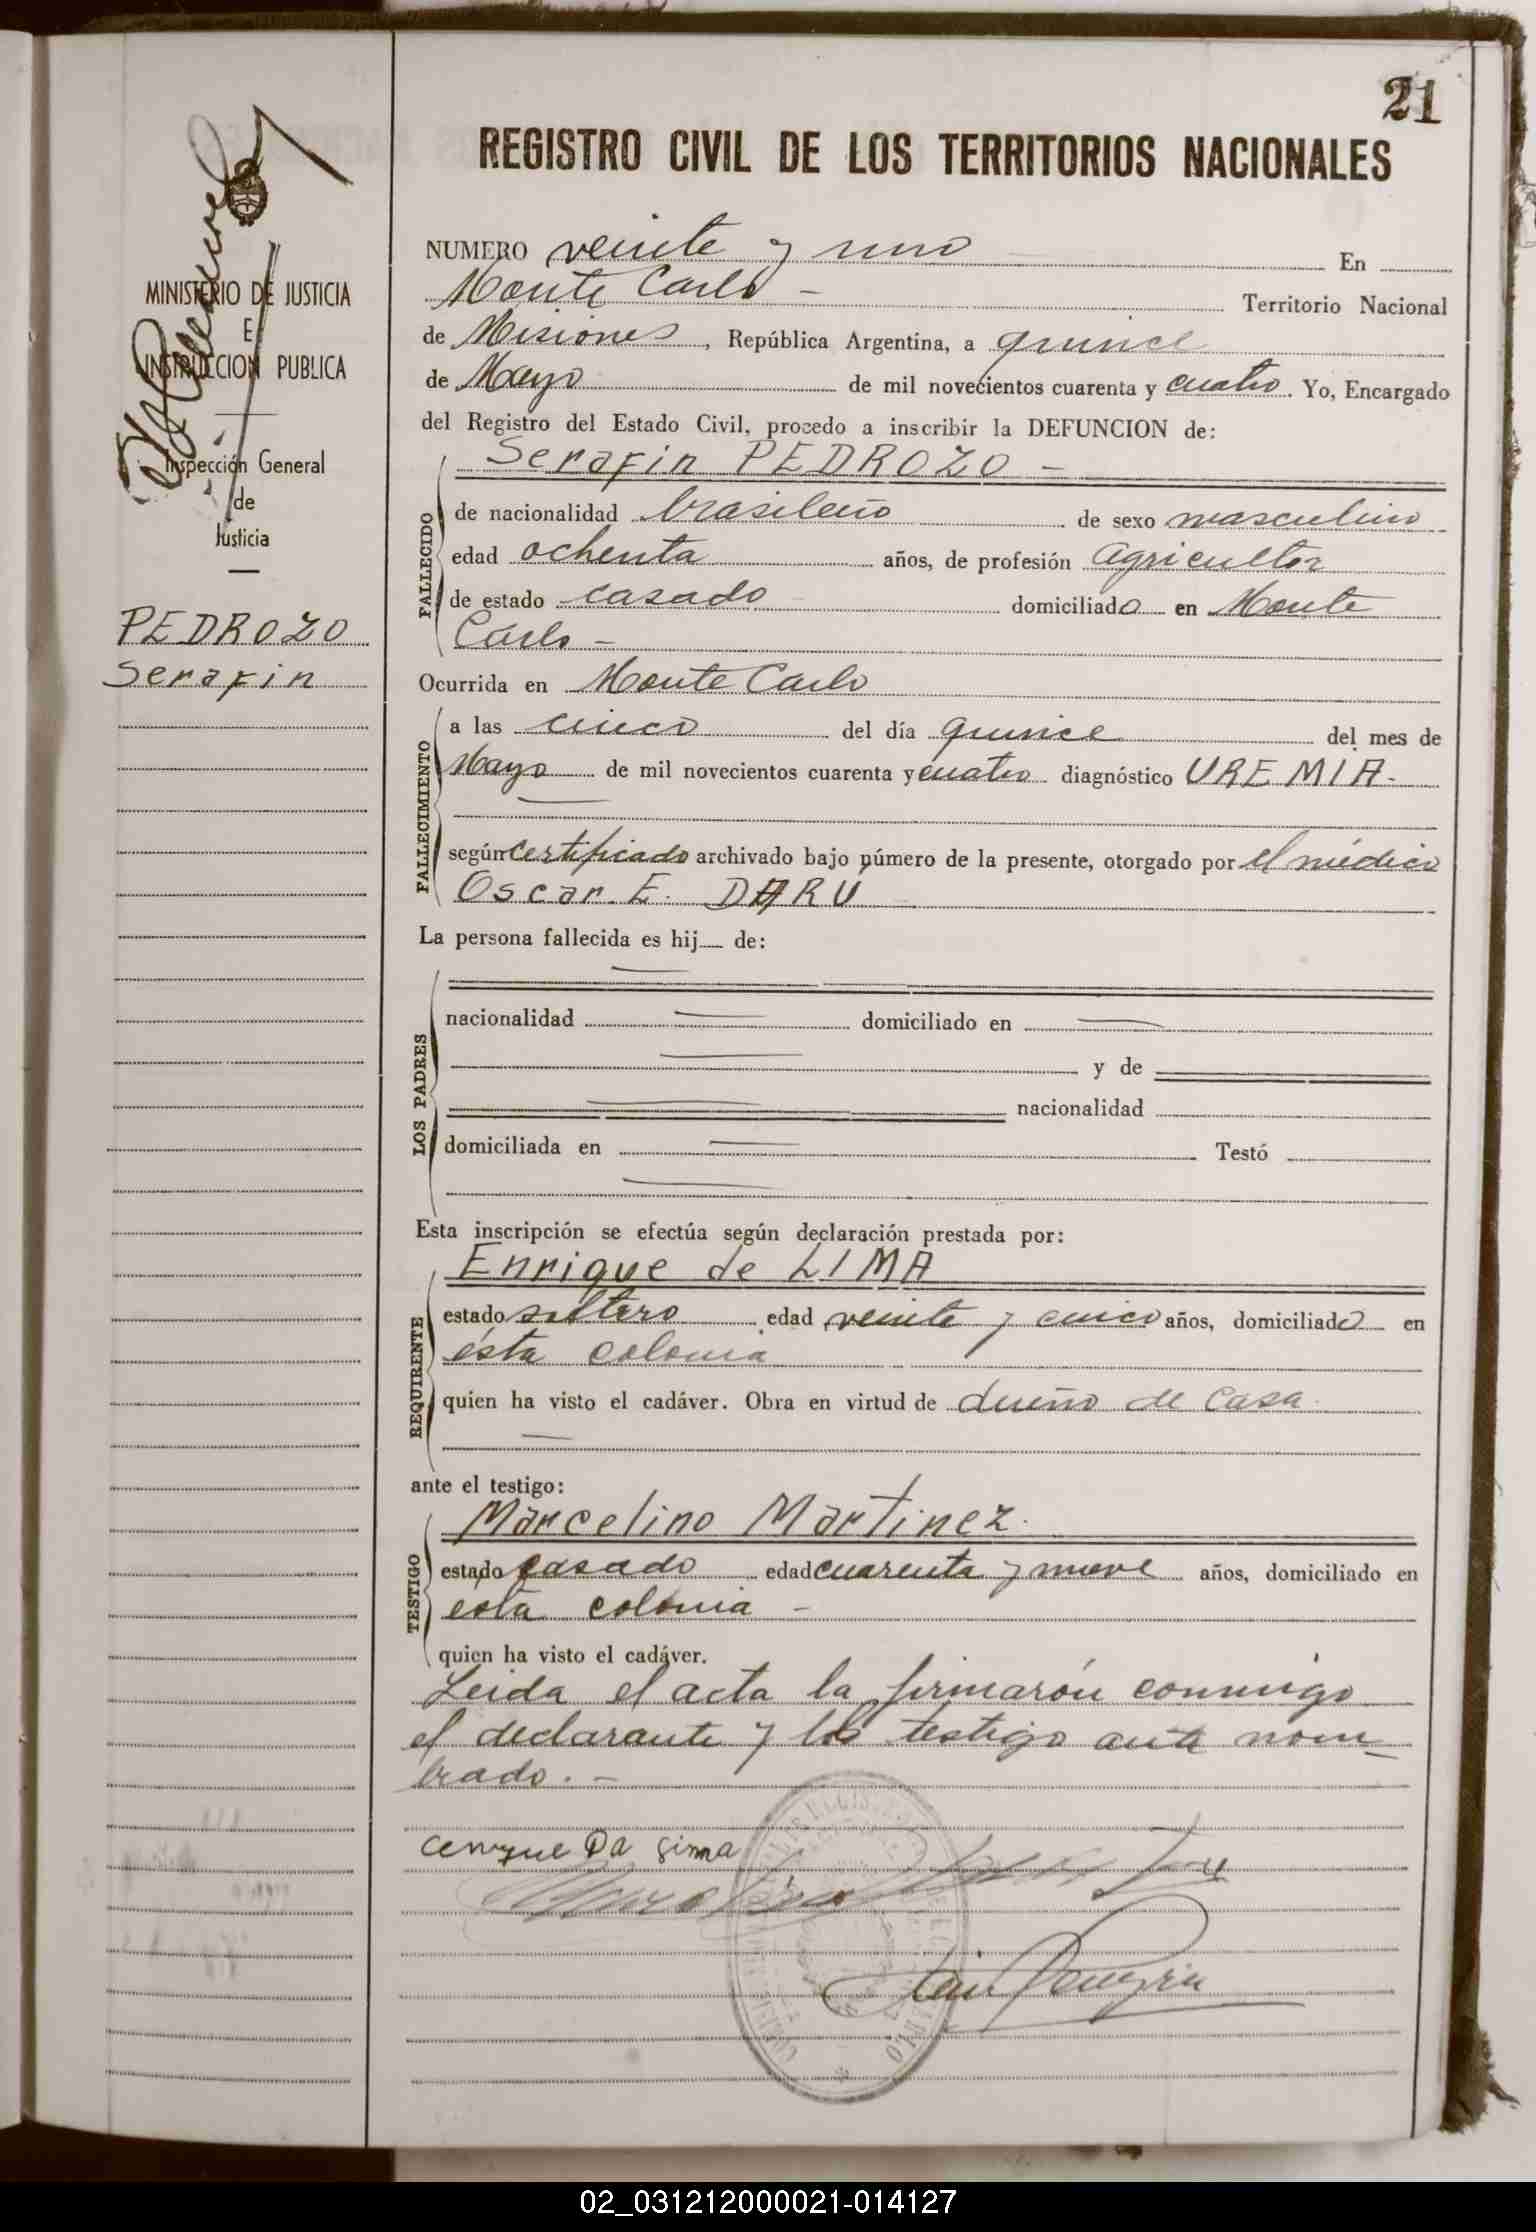 21
REGISTRO CIVIL DE LOS TERRITORIOS NACIONALES
MINISTERIO DE JUSTICIA
E
INSTRUCCION PUBLICA
Inspección General
de
Justicia
PEDROZO
Serafin
NUMERO veinte y uno En
Monte Carlo - Territorio Nacional
de Misiones, República Argentina, a quince
de Mayo de mil novecientos cuarenta y cuatro. Yo, Encargado
del Registro del Estado Civil, procedo a inscribir la DEFUNCION de:
Serafin PEDROZO -
FALLECIDO
de nacionalidad brasileño de sexo masculino
edad ochenta años, de profesión agricultor
de estado casado domiciliado en Monte
Carlo -
Ocurrida en Monte Carlo
FALLECIMIENTO
a las cinco del día quince del mes de
Mayo de mil novecientos cuarenta y cuatro diagnóstico UREMIA.-
según certificado archivado bajo número de la presente, otorgado por el médico
Oscar E. DARÚ
La persona fallecida es hij de:
LOS PADRES
nacionalidad domiciliado en
y de
nacionalidad
domiciliada en Testó
Esta inscripción se efectúa según declaración prestada por:
Enrique de LIMA
REQUIRENTE
estado soltero edad veinte y cinco años, domiciliado en
ésta colonia
quien ha visto el cadáver. Obra en virtud de dueño de casa.
ante el testigo:
Marcelino Martinez.
TESTIGO
estado casado edad cuarenta y nueve años, domiciliado en
esta colonia -
quien ha visto el cadáver.
Leida el acta la firmarón conmigo
el declarante y los testigo ante nom-
brado. -
cenrque Da Lima
02_031212000021-014127